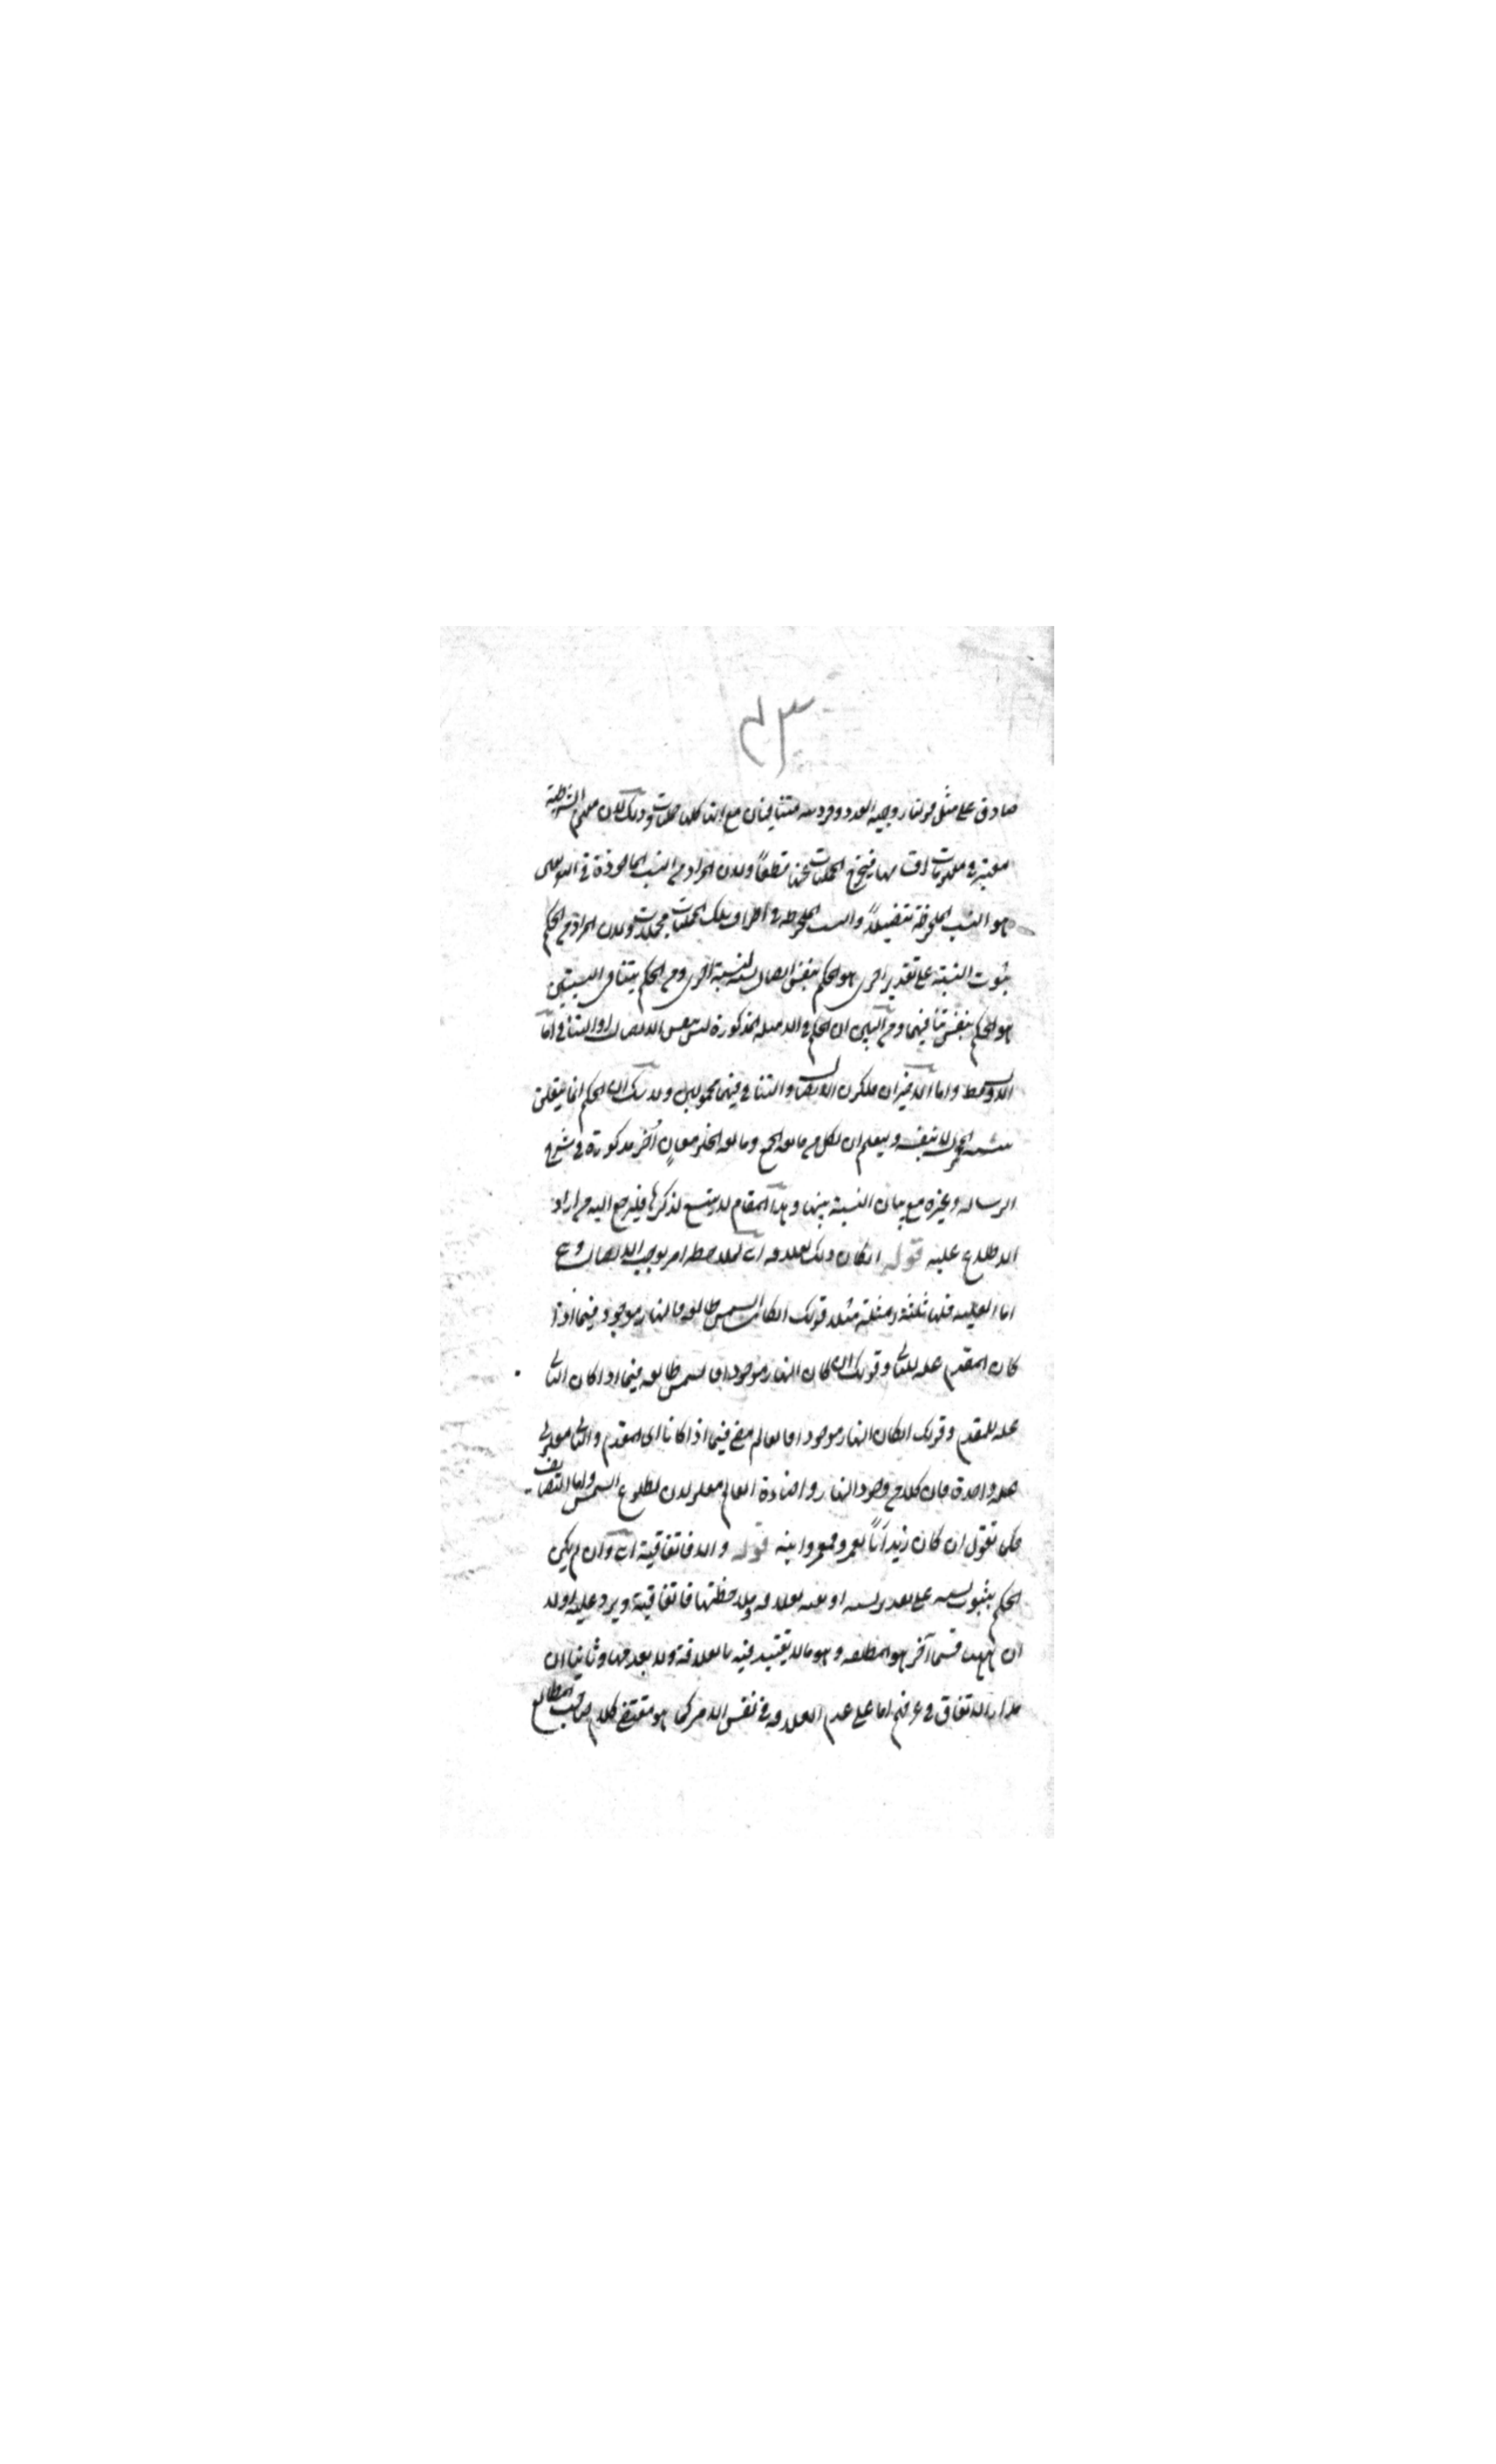 صادق على مثل قولنا زوجية العدد وفرديته متنافيتان مع انها كلها حمليات وذلك لان مفهوم الشرطية
معتبر في مفهومات اقسامها فيخرج الحمليات عنها قطعاً ولان المراد من النسب الماخوذة في التعريف
هو النسب الملحوظة تفصيلاً والنسب الملحوظة في اطراف تلك الحمليات مجملات ولان المراد من الحكم
بثبوت النسبة على تقدير اخرى هو الحكم بنفس اتصال نسبة لنسبة اخرى ومن الحكم بتنافي النسبتين
هو الحكم بنفس تنافيهما ومن البين ان الحكم في الامثلة المذكورة ليس بنفس الاتصال او التنافي اما
الاوسط واما الاخيران فلكون الاتصال والتنافي فيهما محمولين ولا شك ان الحكم انما يتعلق
بنسبة المحمول لا بنفسه وليعلم ان لكل من مانعة الجمع ومانعة الخلو معانٍ اُخر مذكورة في شرح
الرسالة وغيره مع بيان النسبة بينها وهذا المقام لا يتسع لذكرها فليرجع اليه من اراد
الاطلاع عليه قوله ان كان ذلك لعلاقة اى لملاحظة امر يوجب الاتصال وهي
اما العلية فلها ثلثة امثلة مثلا قولك ان كانت الشمس طالعة فالنهار موجود فيما اذا
كان المقدم علة للتالى وقولك ان كان النهار موجودا فالشمس طالعة فيما اذا كان التالى
علة للمقدم وقولك ان كان النهار موجودا فالعالم مضئ فيما اذا كانا اى المقدم والتالى معلولى
علة واحدة فان كلا من وجود النهار واضاءة العالم معلولان لطلوع الشمس واما التضايف
فكان تقول ان كان زيد اباً لعمرو فعمرو ابنه قوله والا فاتفاقية اى وان لم يكن
الحكم بثبوت نسبة على تقدير نسبة او نفيه لعلاقة وبملاحظتها فاتفاقية ويرد عليه اولا
ان ههنا قسما آخر هو المطلقة وهو ما لا يتقيد فيه بالعلاقة ولا بعدمها وثانيا ان
مدار الاتفاق في عرفهم اما على عدم العلاقة في نفس الامر كما هو مقتضى كلام صاحب المطالع